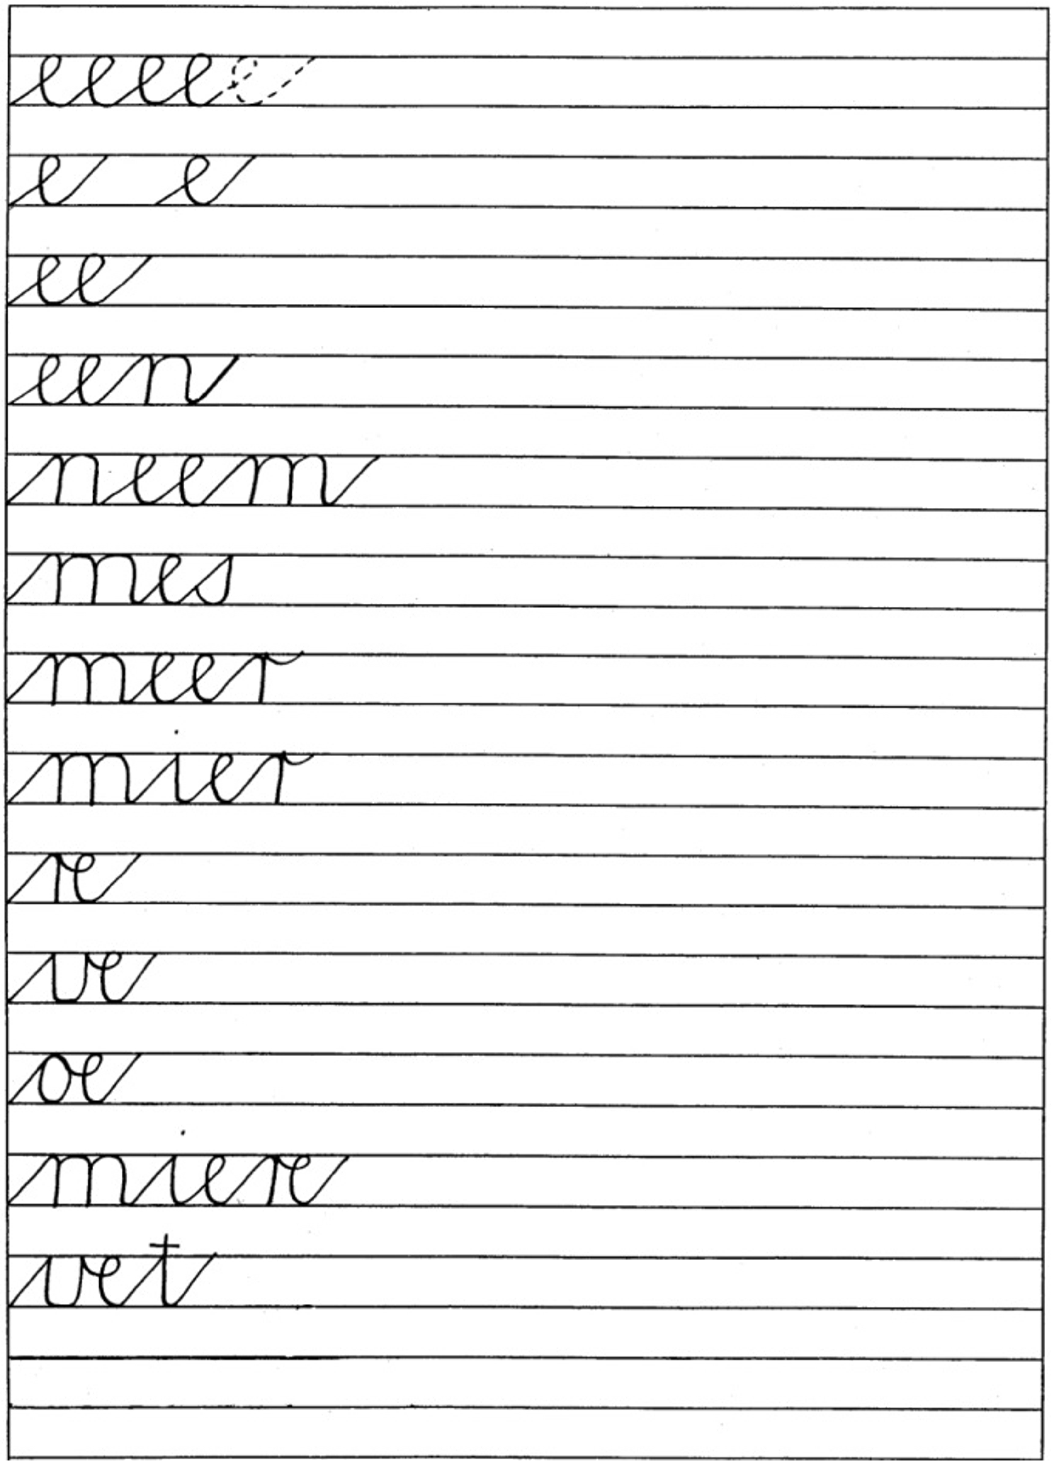 eeeee
e e
ee
een
neem
mes
meer
mier
re
ve
oe
miere
vet